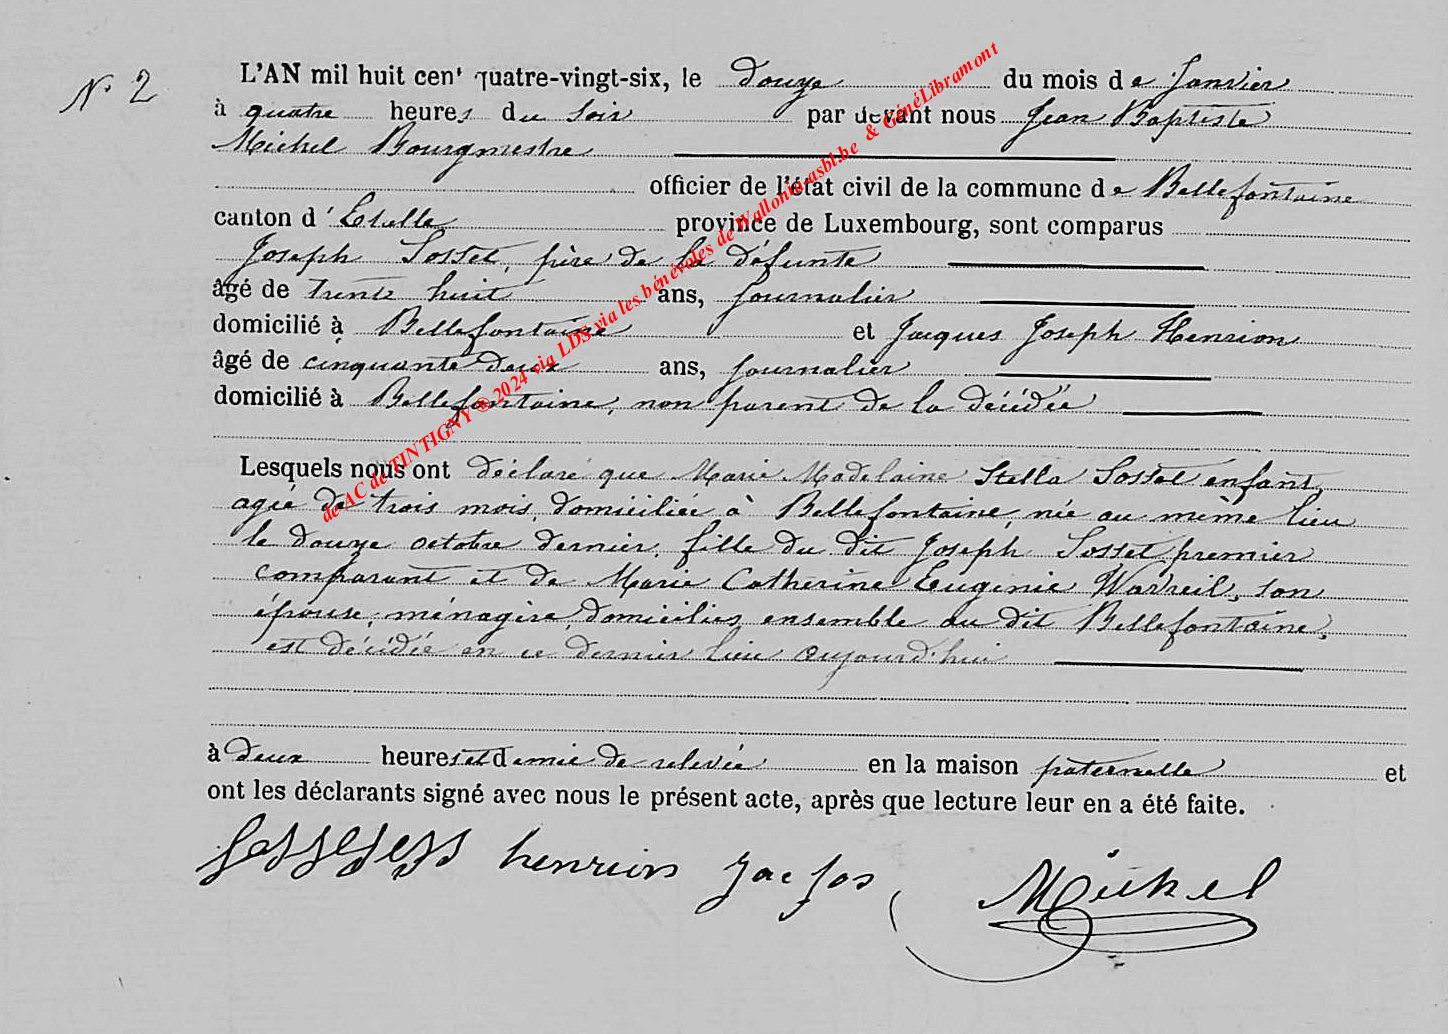 N° 2
L'AN mil huit cent quatre-vingt-six, le douze du mois de Janvier
à quatre heures du soir par devant nous Jean Baptiste
Michel Bourgmestre
officier de l'état civil de la commune de Bellefontaine
canton d'Etalle province de Luxembourg, sont comparus
Joseph Sosset, père de la défunte
âgé de trente huit ans, journalier
domicilié à Bellefontaine et Jacques Joseph Henrion
âgé de cinquante deux ans, journalier
domicilié à Bellefontaine, non parent de la décédée
Lesquels nous ont déclaré que Marie Madelaine Stella Sosset enfant
agée de trois mois, domiciliée à Bellefontaine, née au même lieu
le douze octobre dernier, fille du dit Joseph Sosset premier
comparant et de Marie Catherine Eugenie Wavreil, son
épouse, ménagère, domiciliés ensemble au dit Bellefontaine,
est décédée en ce dernier lieu aujourd'hui
à deux heures et demie de relevée en la maison paternelle et
ont les déclarants signé avec nous le présent acte, après que lecture leur en a été faite.
henrion Jac Jos Michel
de AC de TINTIGNY ® 2024 via LDS via les bénévoles de Wallonia-asbl.be & GénéLibramont